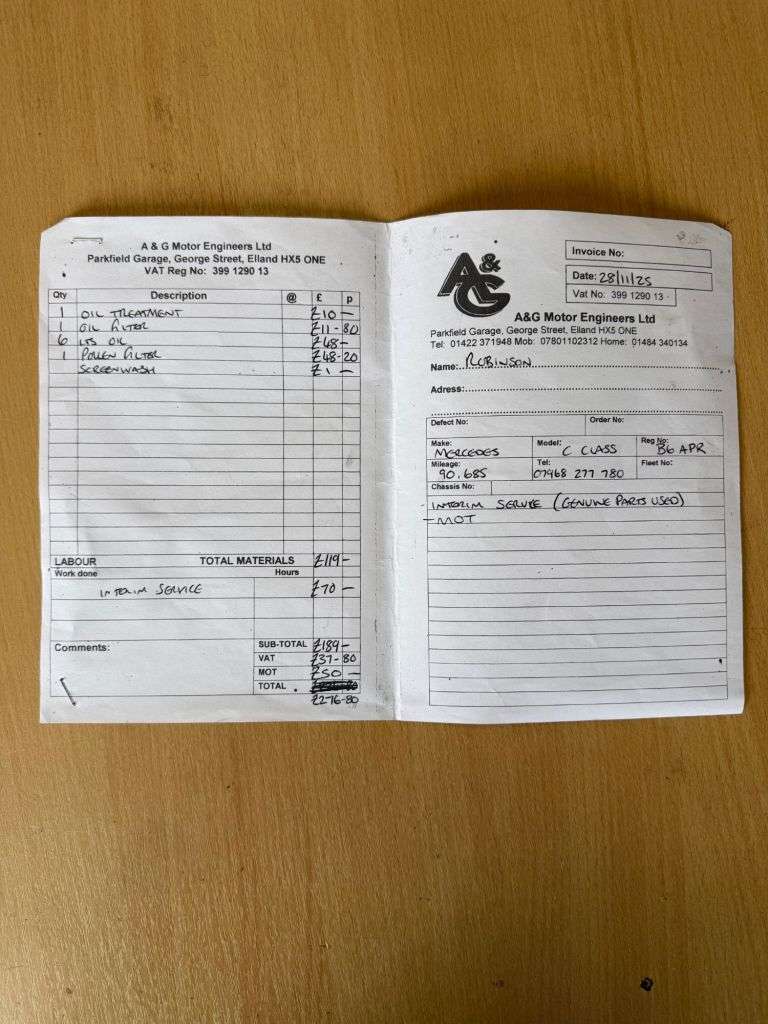 A & G Motor Engineers Ltd
Parkfield Garage, George Street, Elland HX5 ONE
VAT Reg No: 399 1290 13
Qty Description @ £ p
1 OIL TREATMENT £10 —
1 OIL FILTER £11-80
6 LTS OIL £48-
1 POLLEN FILTER £48-20
SCREENWASH £1 —
LABOUR TOTAL MATERIALS £119-
Work done Hours
INTERIM SERVICE £70 —
Comments:
SUB-TOTAL £189-
VAT £37-80
MOT £50 —
TOTAL
£276-80
A&G
Invoice No:
Date: 28/11/25
Vat No: 399 1290 13
A&G Motor Engineers Ltd
Parkfield Garage, George Street, Elland HX5 ONE
Tel: 01422 371948 Mob: 07801102312 Home: 01484 340134
Name: ROBINSON
Adress:
Defect No: Order No:
Make: Model: Reg No:
MERCEDES C CLASS B6 APR
Mileage: Tel: Fleet No:
90.685 07468 277 780
Chassis No:
- INTERIM SERVICE (GENUINE PARTS USED)
- MOT